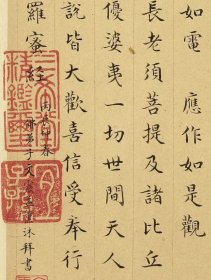 如電　應作如是觀
長老須菩提及諸比丘
優婆夷一切世間天人
說皆大歡喜信受奉行
羅蜜經
沐拜書